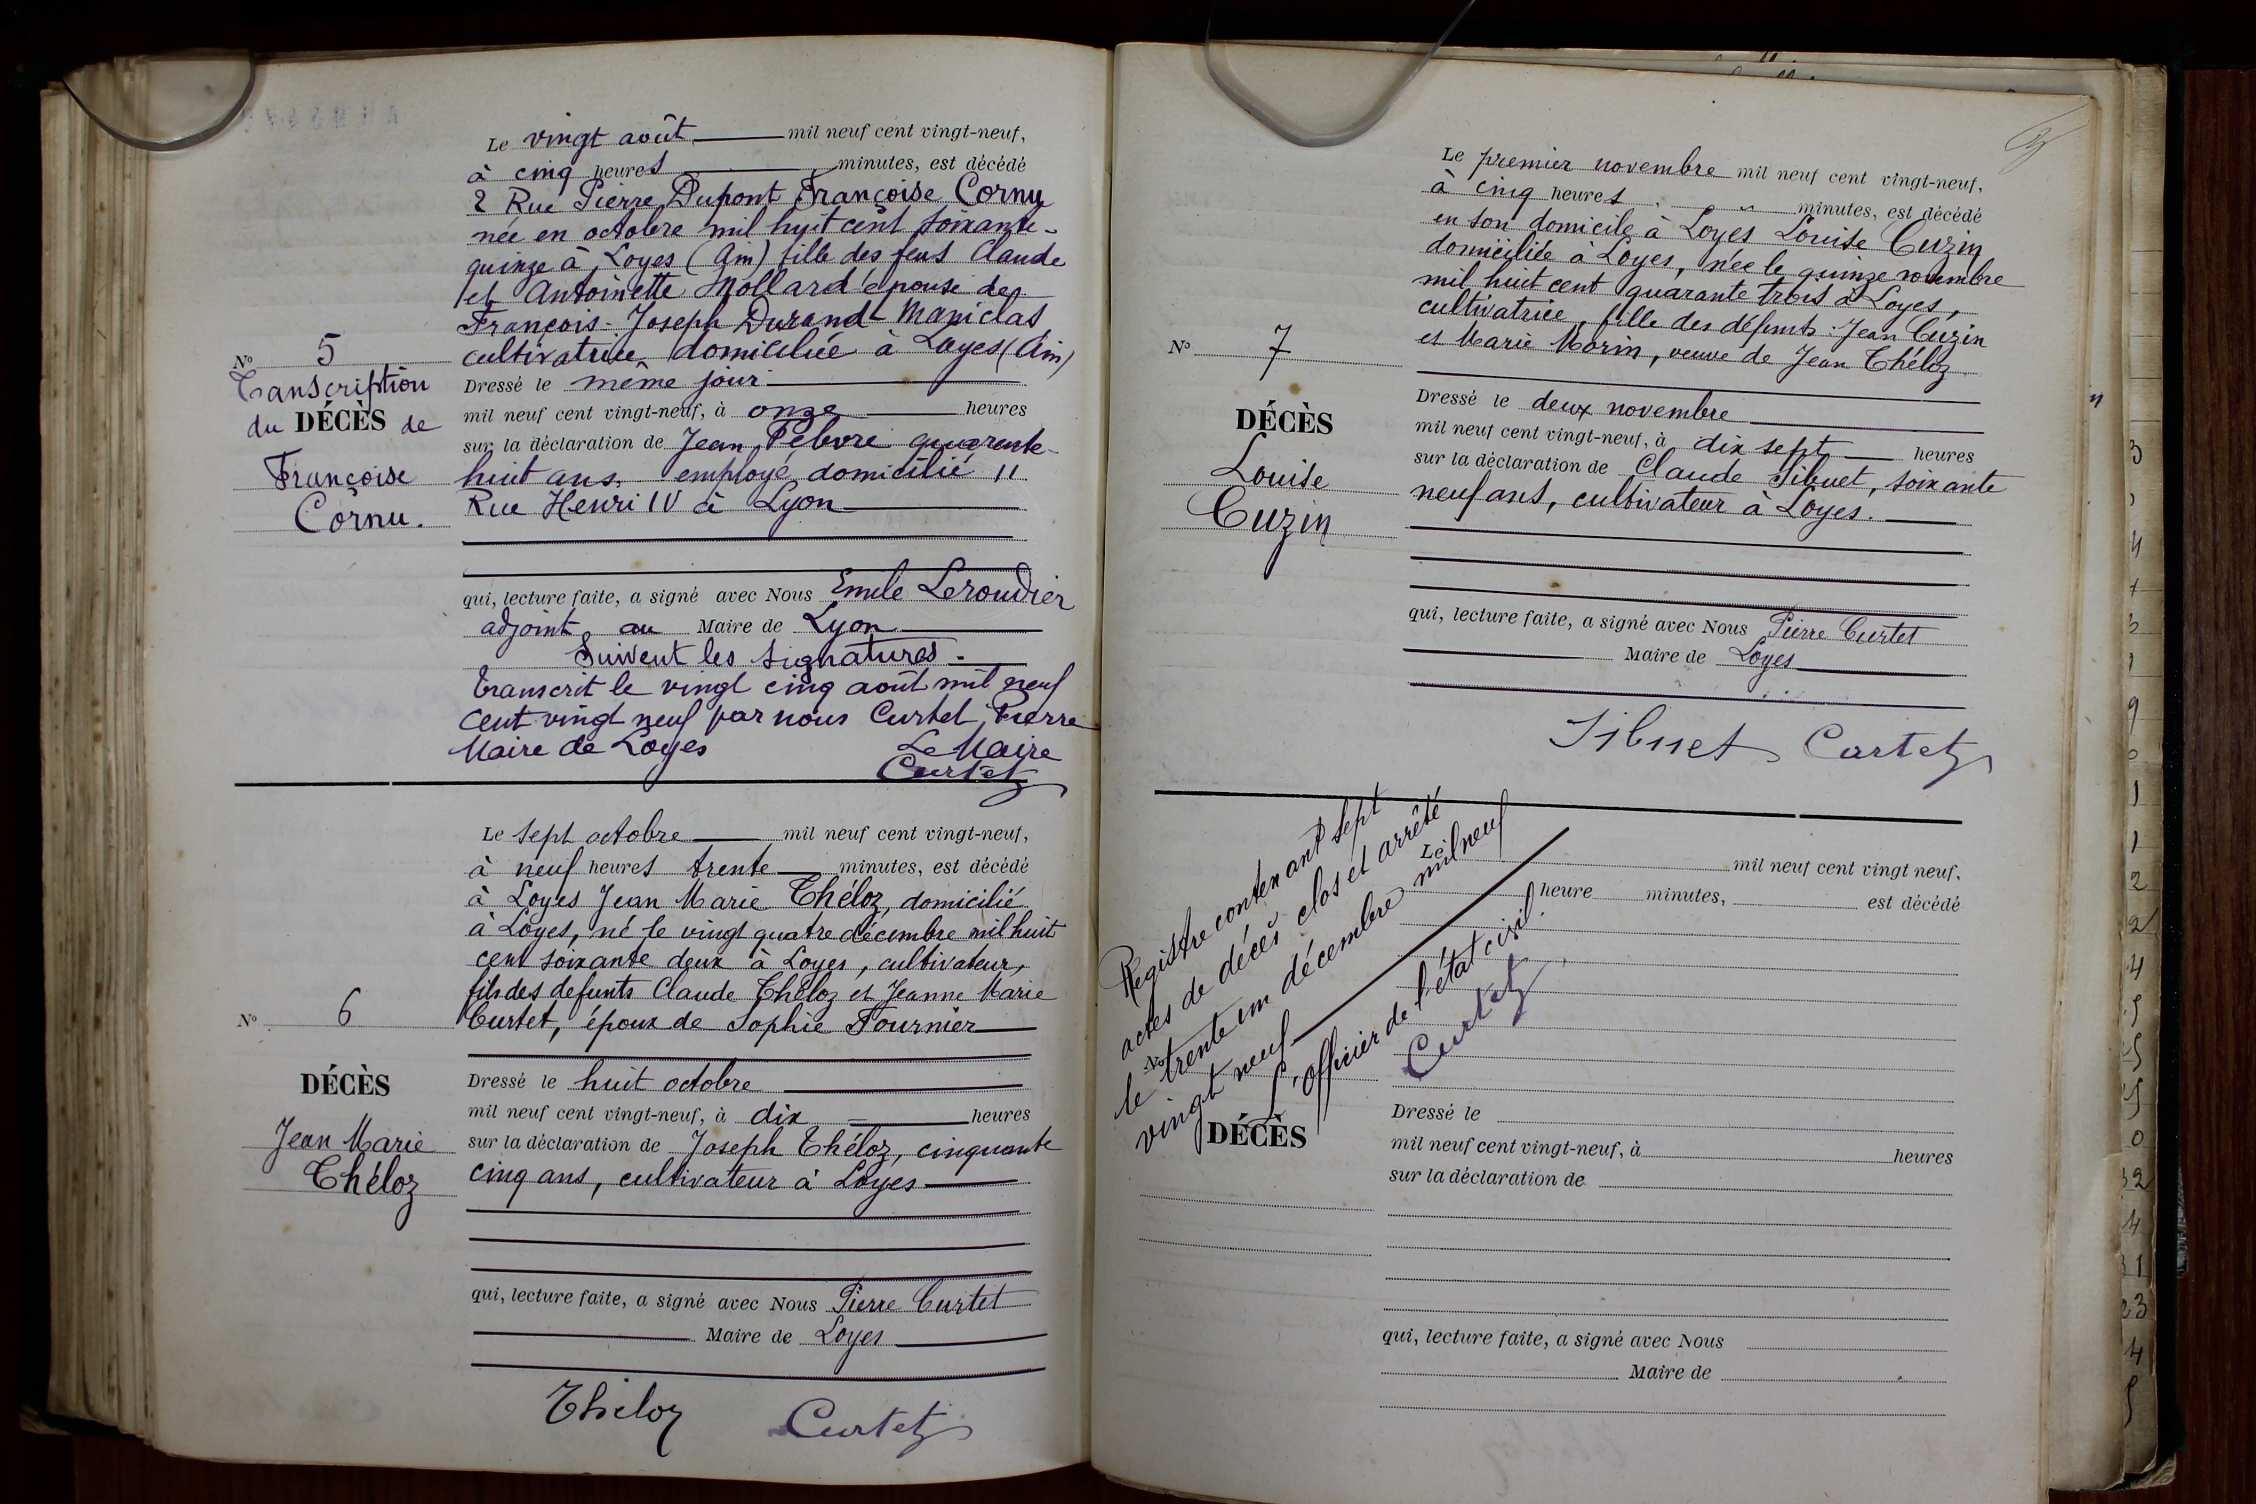 Le vingt août mil neuf cent vingt-neuf,
à cinq heures minutes, est décédé
2 Rue Pierre Dupont Françoise Cornu
née en octobre mil huit cent soixante-
quinze à Loyes (Ain) fille des feus Claude
et Antoinette Mollard épouse de
François-Joseph Durand-Maniclas
cultivatrice domiciliée à Loyes (Ain)
No 5
Transcription
du DÉCÈS de
Françoise
Cornu.
Dressé le même jour
mil neuf cent vingt-neuf, à onze heures
sur la déclaration de Jean Febvre quarente-
huit ans, employé, domicilié 11
Rue Henri IV à Lyon
qui, lecture faite, a signé avec Nous Emile Leroudier
adjoint au Maire de Lyon
Suivent les signatures.
Transcrit le vingt cinq août mil neuf
cent vingt neuf par nous Curtet Pierre
Maire de Loyes Le Maire
Curtet
Le sept octobre mil neuf cent vingt-neuf,
à neuf heures trente minutes, est décédé
à Loyes Jean Marie Théloz, domicilié
à Loyes, né le vingt quatre décembre mil huit
cent soixante deux à Loyes, cultivateur,
fils des defunts Claude Théloz et Jeanne Marie
Curtet, époux de Sophie Fournier
No 6
DÉCÈS
Jean Marie
Théloz
Dressé le huit octobre
mil neuf cent vingt-neuf, à dix heures
sur la déclaration de Joseph Théloz, cinquante
cinq ans, cultivateur à Loyes
qui, lecture faite, a signé avec Nous Pierre Curtet
Maire de Loyes
Théloz Curtet
Le premier novembre mil neuf cent vingt-neuf,
à cinq heures minutes, est décédé
en son domicile à Loyes Louise Cuzin
domiciliée à Loyes, née le quinze novembre
mil huit cent quarante trois à Loyes,
cultivatrice, fille des défunts Jean Cuzin
et Marie Morin, veuve de Jean Théloz
No 7
DÉCÈS
Louise
Cuzin
Dressé le deux novembre
mil neuf cent vingt-neuf, à dix sept heures
sur la déclaration de Claude Sibuet, soixante
neuf ans, cultivateur à Loyes.
qui, lecture faite, a signé avec Nous Pierre Curtet
Maire de Loyes
Sibuet Curtet
Registre contenant sept
actes de décès clos et arrêté
le trente un décembre mil neuf
vingt neuf
L'officier de l'état civil.
Curtet
Le mil neuf cent vingt neuf,
heure minutes, est décédé
No
DÉCÈS
Dressé le
mil neuf cent vingt-neuf, à heures
sur la déclaration de
qui, lecture faite, a signé avec Nous
Maire de